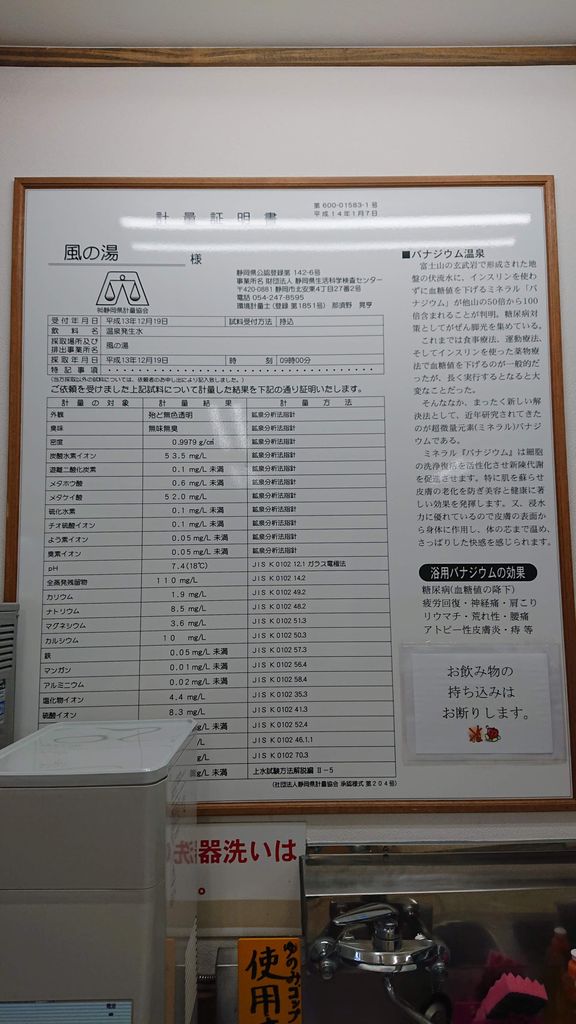 計量証明書
第600-01583-1号
平成14年1月7日
風の湯 様
㈳静岡県計量協会
静岡県公認登録第 142-6号
事業所名 財団法人 静岡県生活科学検査センター
〒420-0881 静岡市北安東4丁目27番2号
電話 054-247-8595
環境計量士(登録 第1851号) 那須野 晃亨
受付年月日 平成13年12月19日 試料受付方法 持込
飲料名 温泉発生水
採取場所及び排出事業所名 風の湯
採取年月日 平成13年12月19日 時刻 09時00分
特記事項
(当方採取以外の試料については、依頼者のお申し出により記入致しました。)
ご依頼を受けました上記試料について計量した結果を下記の通り証明いたします。
計量の対象 計量結果 計量方法
外観 殆ど無色透明 鉱泉分析法指針
臭味 無味無臭 鉱泉分析法指針
密度 0.9979 g/c㎥ 鉱泉分析法指針
炭酸水素イオン 53.5 mg/L 鉱泉分析法指針
遊離二酸化炭素 0.1 mg/L 未満 鉱泉分析法指針
メタホウ酸 0.6 mg/L 未満 鉱泉分析法指針
メタケイ酸 52.0 mg/L 鉱泉分析法指針
硫化水素 0.1 mg/L 未満 鉱泉分析法指針
チオ硫酸イオン 0.1 mg/L 未満 鉱泉分析法指針
よう素イオン 0.05 mg/L 未満 鉱泉分析法指針
臭素イオン 0.05 mg/L 未満 鉱泉分析法指針
pH 7.4(18℃) JIS K 0102 12.1 ガラス電極法
全蒸発残留物 110 mg/L JIS K 0102 14.2
カリウム 1.9 mg/L JIS K 0102 49.2
ナトリウム 8.5 mg/L JIS K 0102 48.2
マグネシウム 3.6 mg/L JIS K 0102 51.3
カルシウム 10 mg/L JIS K 0102 50.3
鉄 0.05 mg/L 未満 JIS K 0102 57.3
マンガン 0.01 mg/L 未満 JIS K 0102 56.4
アルミニウム 0.02 mg/L 未満 JIS K 0102 58.4
塩化物イオン 4.4 mg/L JIS K 0102 35.3
硫酸イオン 8.3 mg/L JIS K 0102 41.3
g/L 未満 JIS K 0102 52.4
/L JIS K 0102 46.1.1
g/L JIS K 0102 70.3
g/L 未満 上水試験方法解説編 Ⅱ-5
(社団法人静岡県計量協会 承認様式 第204号)
■バナジウム温泉
富士山の玄武岩で形成された地
盤の伏流水に、インスリンを使わ
ずに血糖値を下げるミネラル「バ
ナジウム」が他山の50倍から100
倍含まれることが判明。糖尿病対
策としてがぜん脚光を集めている。
これまでは食事療法、運動療法、
そしてインスリンを使った薬物療
法で血糖値を下げるのが一般的だ
ったが、長く実行するとなると大
変なことだった。
そんななか、まったく新しい解
決法として、近年研究されてきた
のが超微量元素(ミネラル)バナジ
ウムである。
ミネラル『バナジウム』は細胞
の洗浄復活を活性化させ新陳代謝
を促進させます。特に肌を蘇らせ
皮膚の老化を防ぎ美容と健康に著
しい効果を発揮します。又、浸水
力に優れているので皮膚の表面か
ら身体に作用し、体の芯まで温め、
さっぱりした快感を感じられます。
浴用バナジウムの効果
糖尿病(血糖値の降下)
疲労回復・神経痛・肩こり
リウマチ・荒れ性・腰痛
アトピー性皮膚炎・痔 等
お飲み物の
持ち込みは
お断りします。
洗器洗いは
。
のみコップ
使用